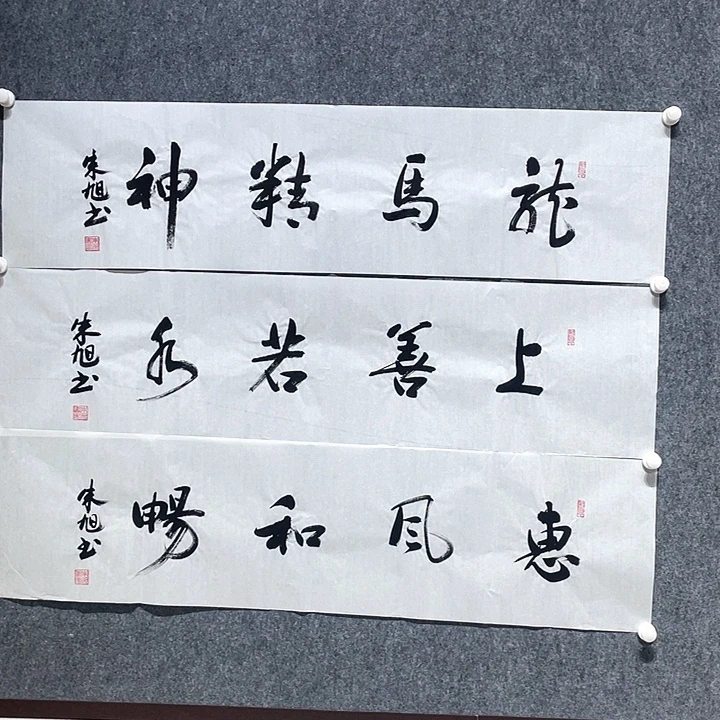 龍馬精神
朱旭书
上善若水
朱旭书
惠风和暢
朱旭书